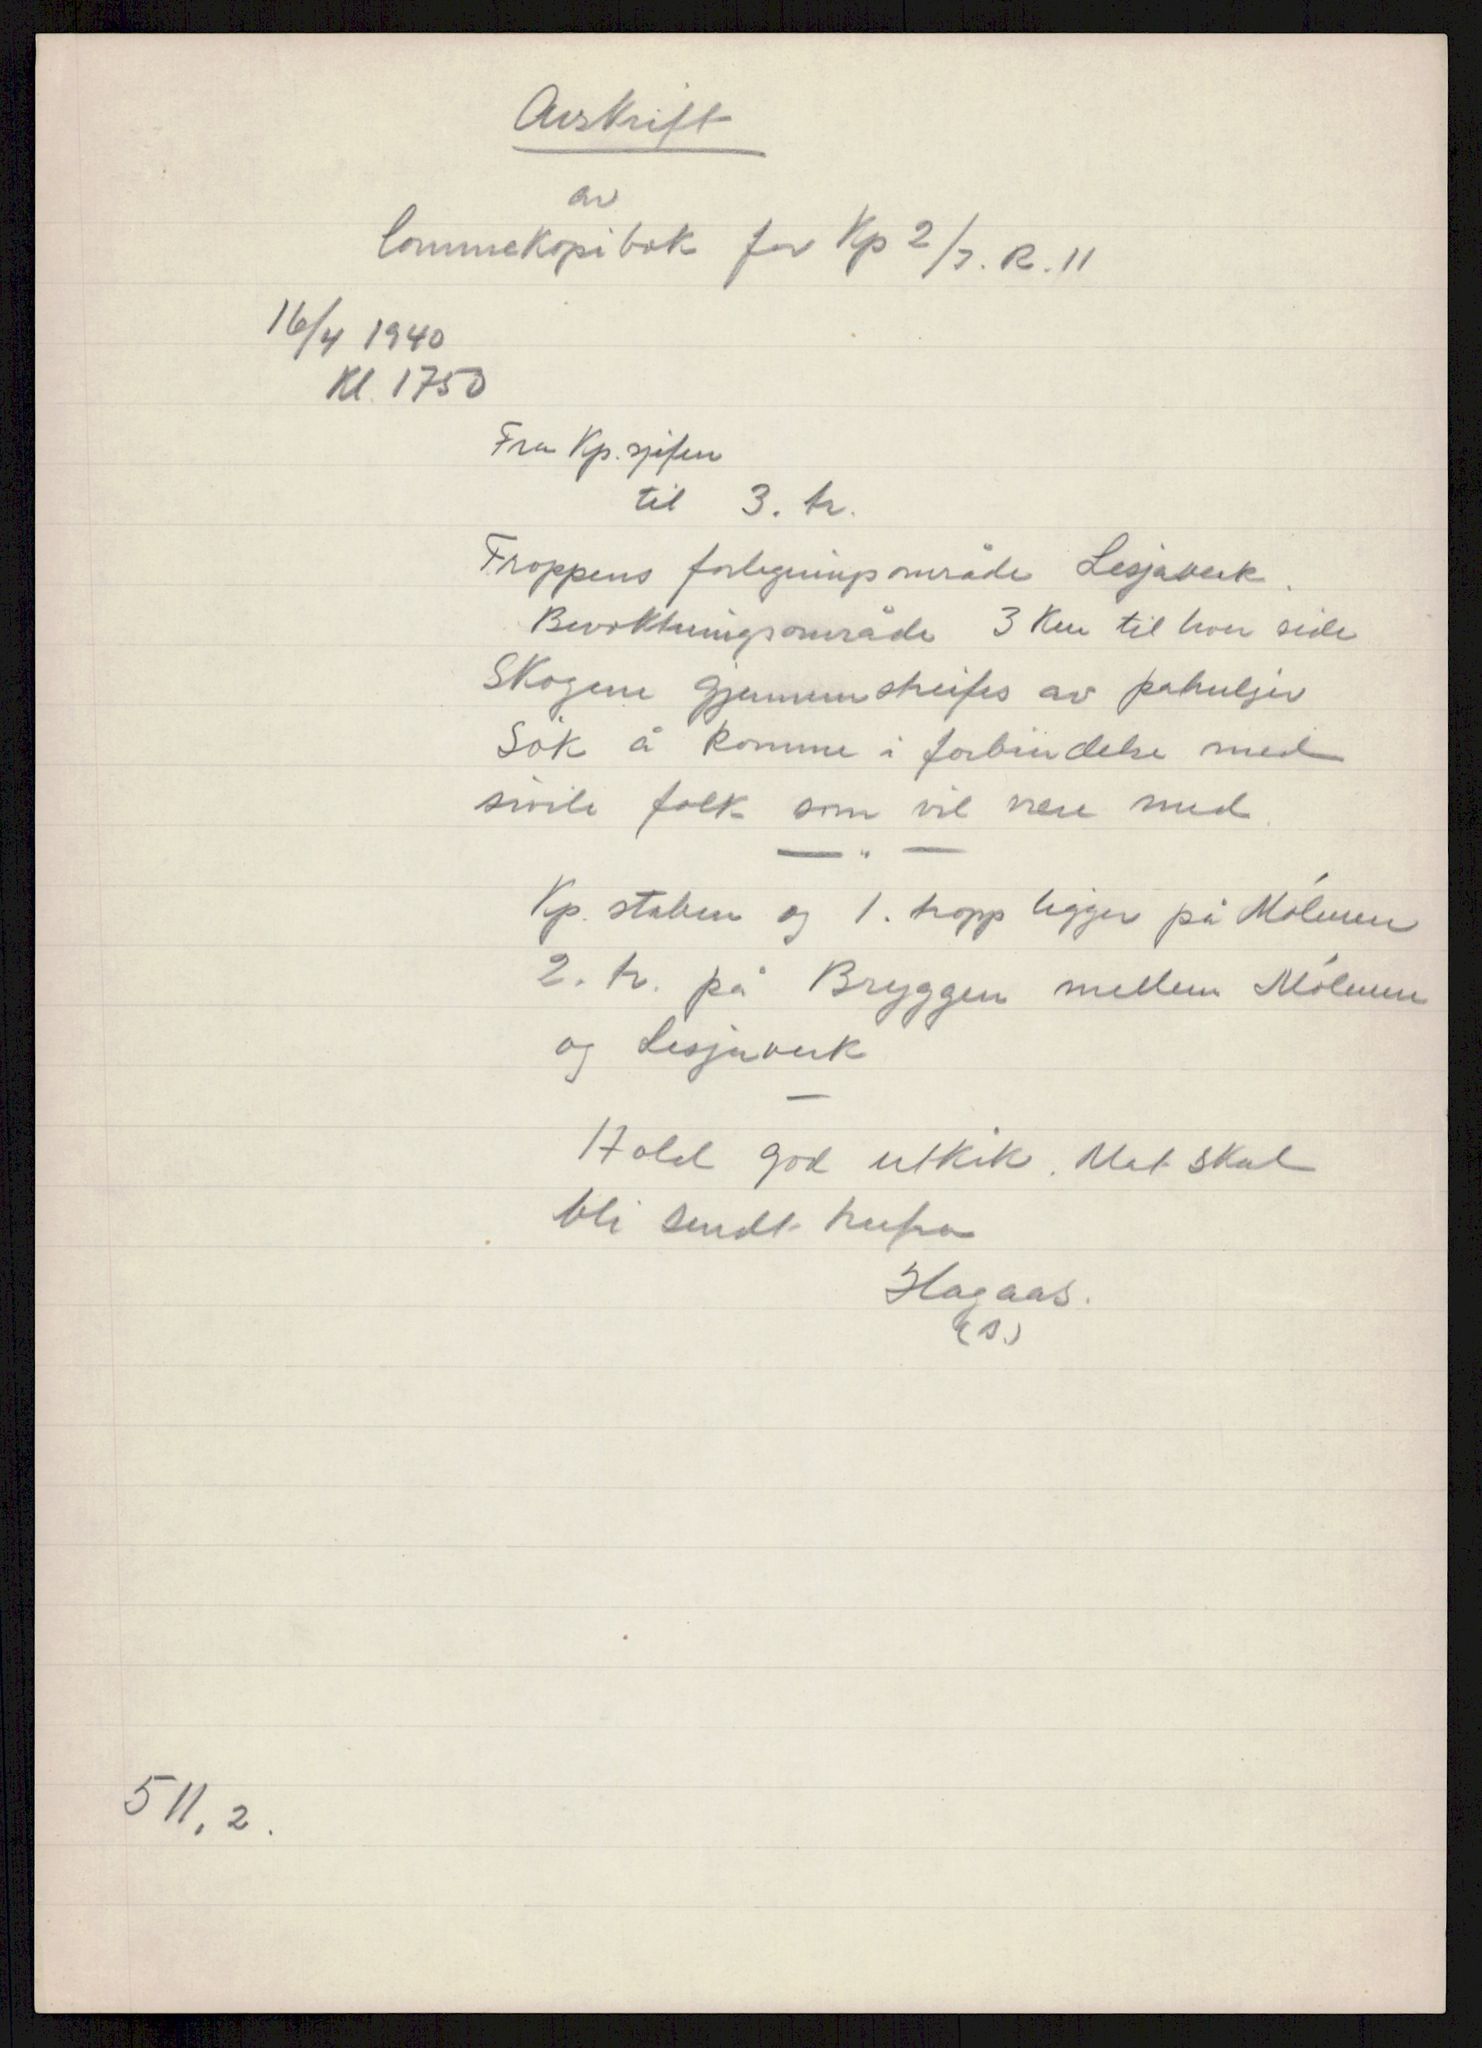 Avskrift
av
lommekopibok for Kp 2/J. R. 11
16/4 1940
Kl. 1750
Fra Kp. sjefen
til 3. tr.
Troppens forlegningsområde Lesjaverk.
Bevoktningsområde 3 Km til hver side
Skogene gjennemstreifes av patruljer
Søk å komme i forbindelse med
sivile folk som vil være med.
— " —
Kp. staben og 1. tropp ligger på Mólmen
2. tr. på Bryggen mellem Mólmen
og Lesjaverk
—
Hold god utkik. Mat skal
bli sendt herfra
Hagaas.
(s.)
511.2.